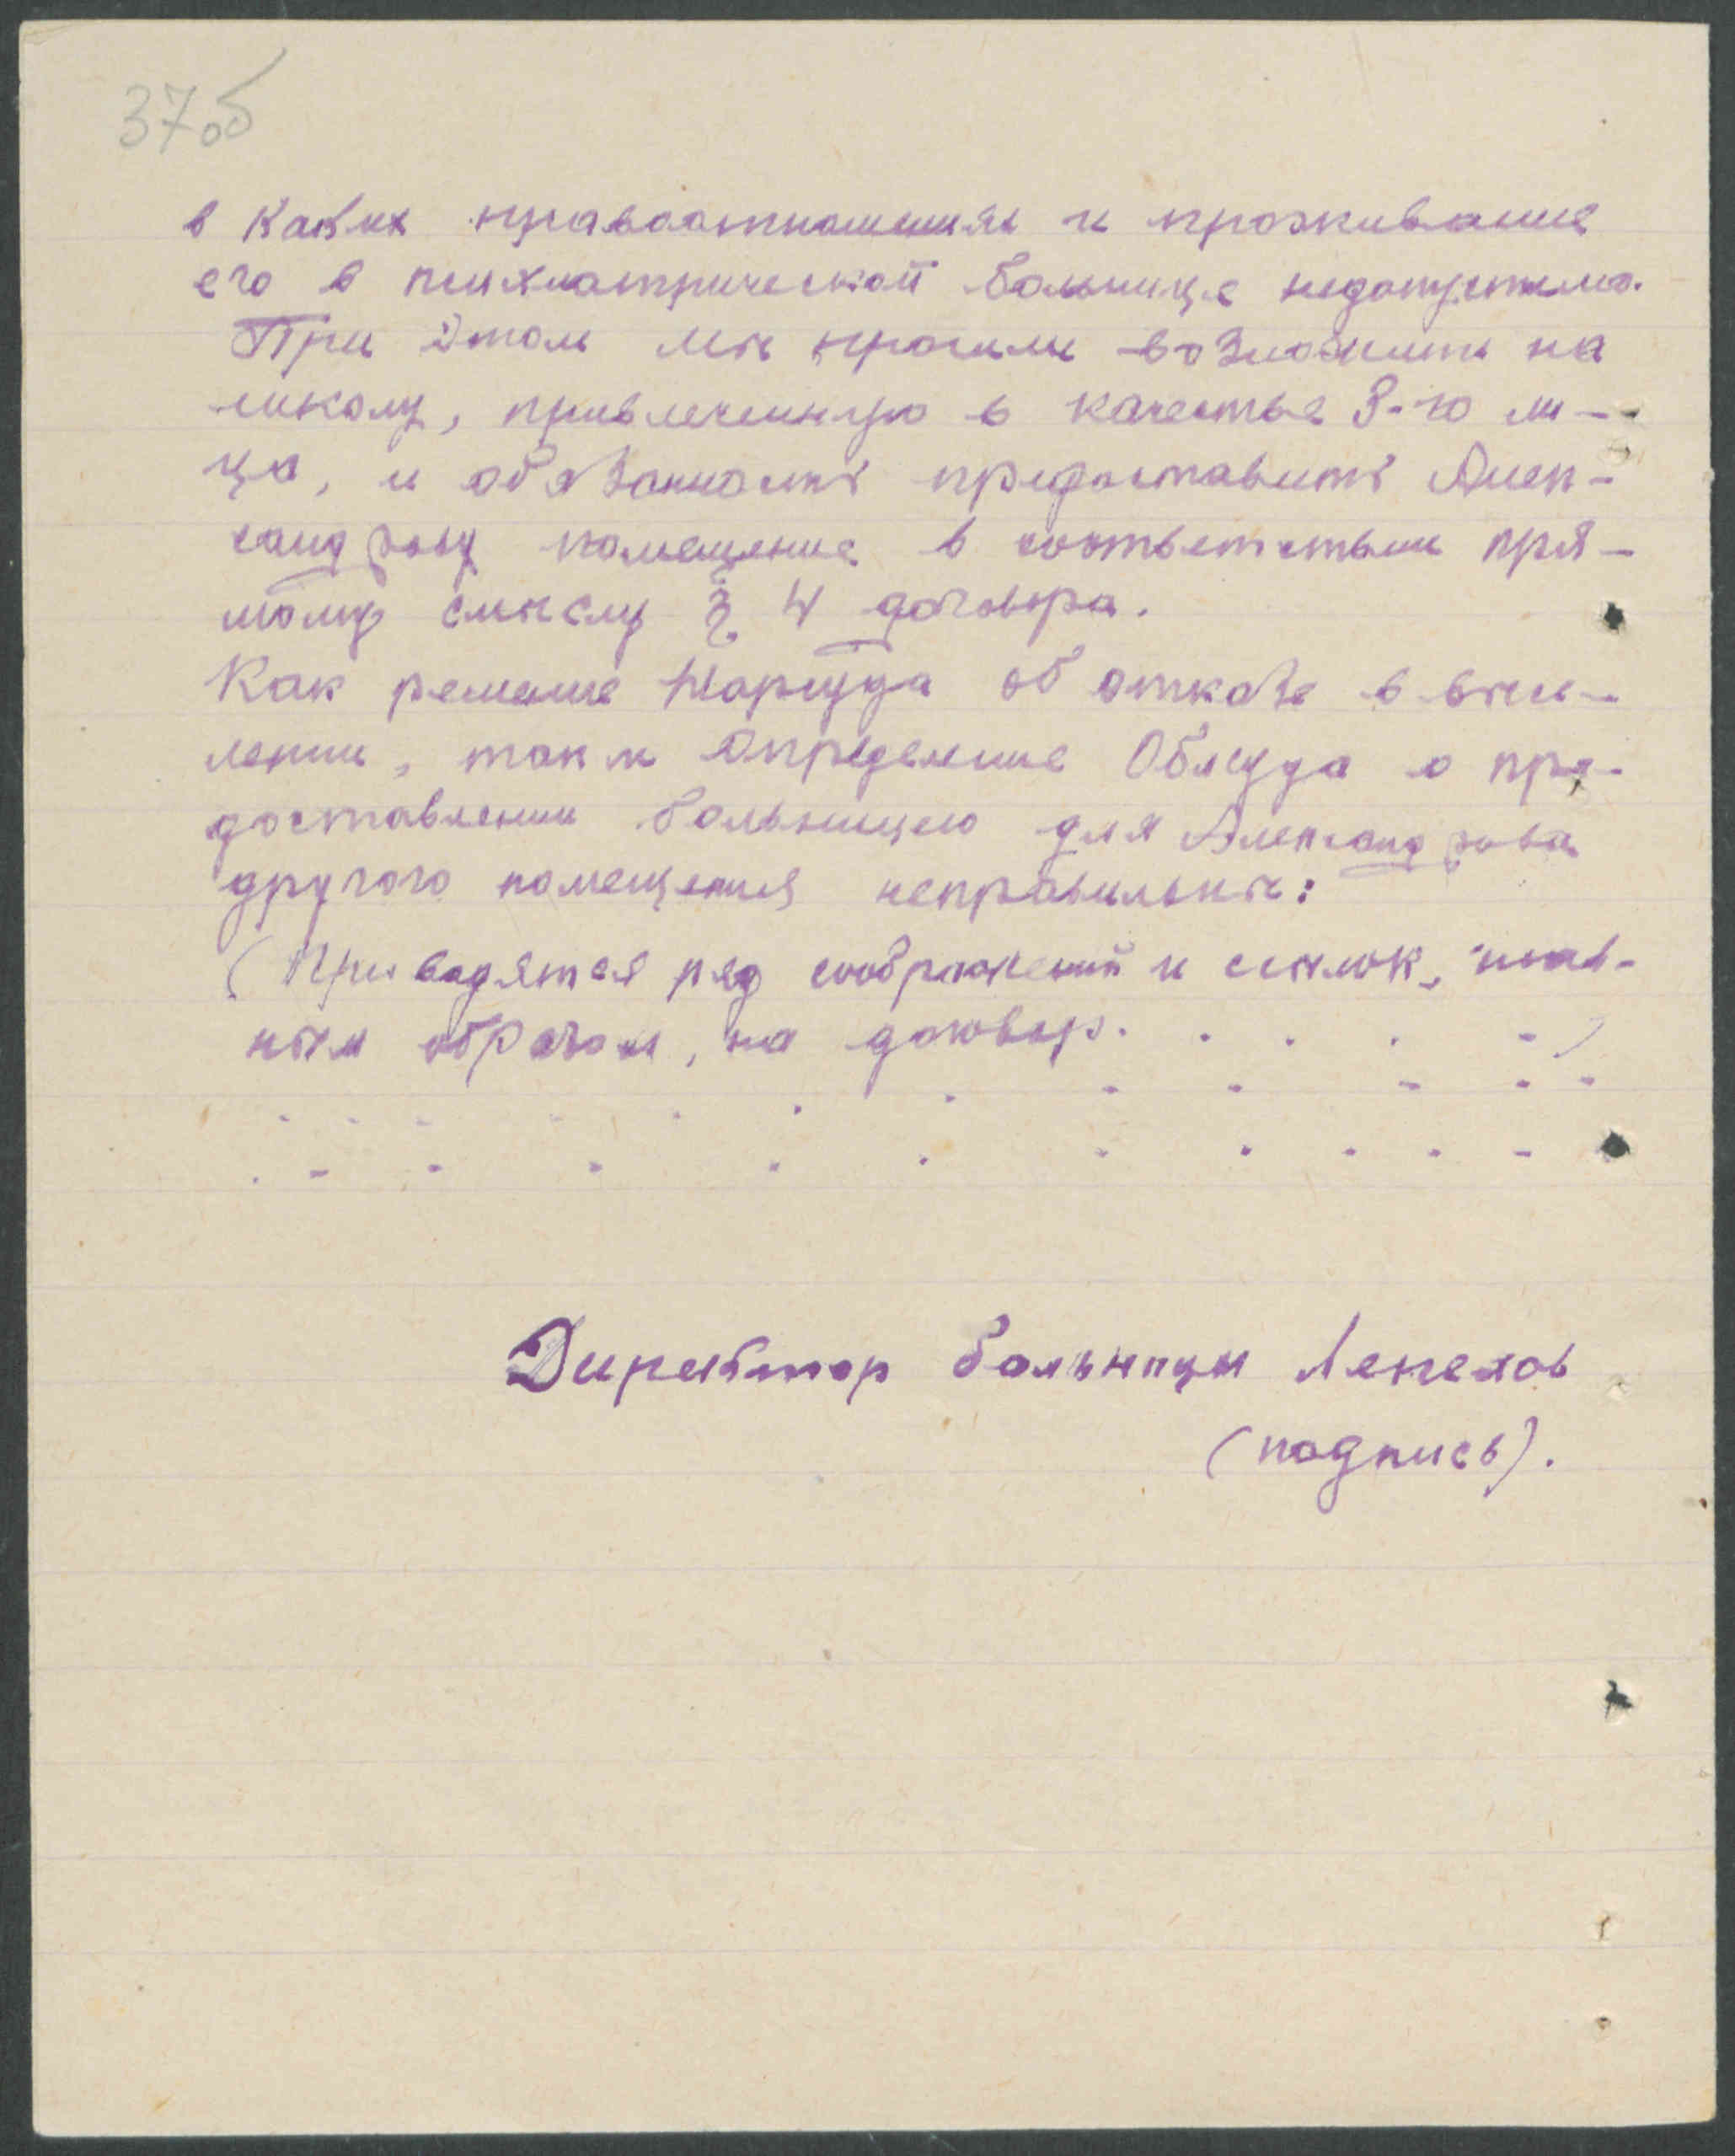 37об
в каких правоотношениях и проживание
его в психиатрической больнице недопустимо.
При этом мы просили возложить на
школу, привлеченную в качестве 3-го ли-
ца, и обязанность предоставить Алек-
сандрову помещение в соответствии пря-
мому смыслу § 4 договора.
Как решение Нарсуда об отказе в высе-
лении, так и Определение Облсуда о пре-
доставлении больницею для Александрова
другого помещения неправильны:
(Приводятся ряд соображений и ссылок, глав-
ным образом, на договор. . . . . )
. . . . . . . . . . . .
. . . . . . . . . . .
Директор больницы
(подпись).